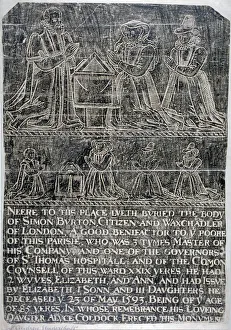 NEERE TO THIS PLACE LYETH BURIED THE BODY
OF SIMON BVRTON CITIZEN AND WAXCHADLER
OF LONDON, A GOOD BENIFACTOR TO Y POORE
OF THIS PARISH, WHO WAS 3 TYMES MASTER OF
HIS COMPANY, AND ONE OF THE GOVERNORS
OF S. THOMAS HOSPITALL: AND OF THE COMON
COVNSELL OF THIS WARD XXIX YERES. HE HAD
2 WYVES, ELIZABETH, AND ANN, AND HAD ISSVE
BY ELIZABETH I SONN, AND III DAVGHTERS. HE
DECEASED Y 23 OF MAY 1593. BEING OF Y AGE
OF 85 YERES, IN WHOSE REMEMBRANCE HIS LOVING
DAVGTER ALYCE COLDOCK ERECTED HIS MONVMENT